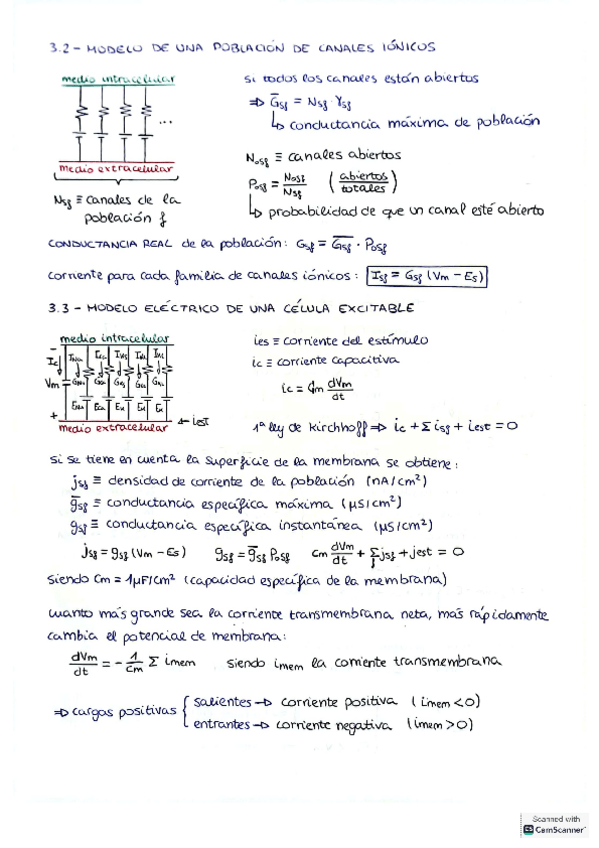 3.2 - MODELO DE UNA POBLACIÓN DE CANALES IÓNICOS
medio intracelular
...
medio extracelular
Nsf ≡ canales de la
población f
si todos los canales están abiertos
⇒ Ḡsf = Nsf · γsf
↳ conductancia máxima de población
Nosf ≡ canales abiertos
Posf = Nosf / Nsf (abiertos / totales)
↳ probabilidad de que un canal esté abierto
CONDUCTANCIA REAL de la población: Gsf = Ḡsf · Posf
corriente para cada familia de canales iónicos: Isf = Gsf (Vm - Es)
3.3 - MODELO ELÉCTRICO DE UNA CÉLULA EXCITABLE
medio intracelular
Ic
Vm
- +
ENa ECa EK EK EK
← iest
medio extracelular
ies ≡ corriente del estímulo
ic ≡ corriente capacitiva
ic = Cm dVm/dt
1ª ley de Kirchhoff ⇒ ic + Σ isf + iest = 0
si se tiene en cuenta la superficie de la membrana se obtiene:
jsf ≡ densidad de corriente de la población (nA/cm²)
ḡsf ≡ conductancia específica máxima (μS/cm²)
gsf ≡ conductancia específica instantánea (μS/cm²)
jsf = gsf (Vm - Es) gsf = ḡsf Posf Cm dVm/dt + Σf jsf + jest = 0
siendo Cm = 1μF/cm² (capacidad específica de la membrana)
cuanto más grande sea la corriente transmembrana neta, más rápidamente
cambia el potencial de membrana:
dVm/dt = - 1/Cm Σ imem siendo imem la corriente transmembrana
⇒ cargas positivas { salientes → corriente positiva (imem < 0)
entrantes → corriente negativa (imem > 0)
Scanned with
CS CamScanner